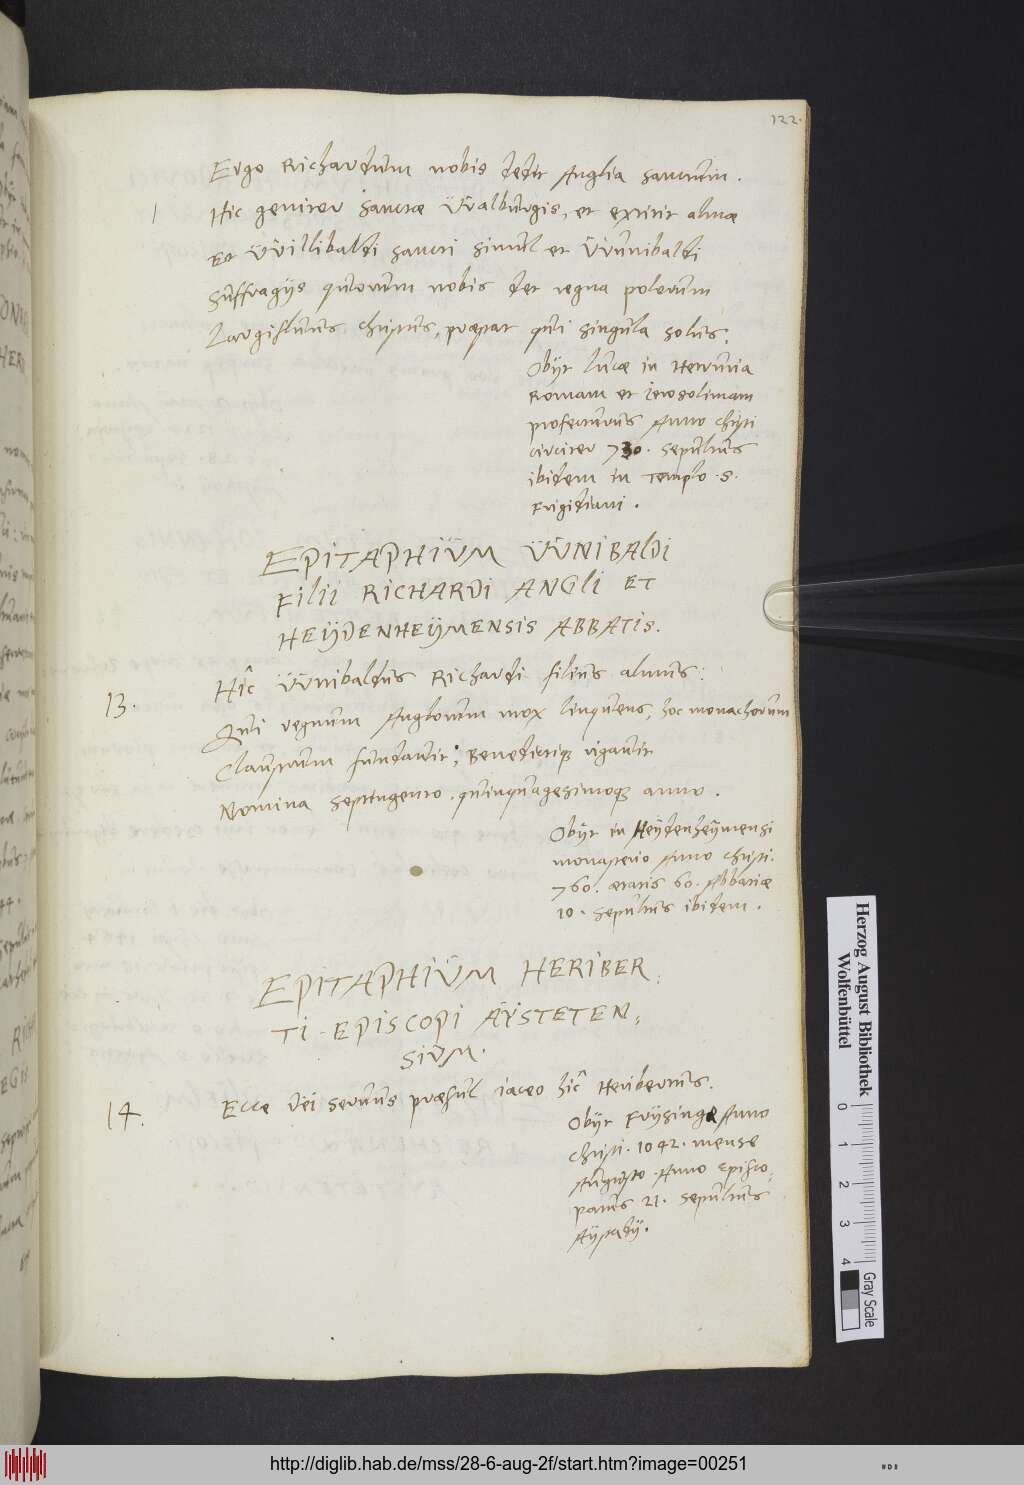 122.
Ergo Richardum nobis dedit Anglia sanctum.
Hic genitor Sanctæ VValburgis, et extitit almæ
Et VVillibaldi sancti simul et VVunibaldi
Suffragijs quorum nobis det regna polorum
Largifluus Christus, præstat qui singula solus.
Obijt Lucæ in Hetruria
Romam et Ierosolimam
profecturus Anno Christi
circiter 730. Sepultus
ibidem in Templo S.
Frigidiani.
EPITAPHIUM VVNIBALDI
FILII RICHARDI ANGLI ET
HEYDENHEYMENSIS ABBATIS.
13.
Hîc VVnibaldus Richardi filius almus:
Qui regnum Anglorum mox linquens, hoc monachorum
Claustrum fundavit; Benedictiq3 rigavit
Nomina septingento. quinquagesimoq3 anno.
Obijt in Heydenheymensi
monasterio Anno Christi.
760. ætatis 60. Abbatiæ
10. sepultus ibidem.
EPITAPHIUM HERIBER
TI EPISCOPI AYSTETEN,
SIUM.
14.
Ecce Dei servus præsul iaceo hîc Heribertus.
Obijt Frysingæ Anno
Christi. 1042. mense
Augusto. Anno Episco,
patus 21. Sepultus
Aystadij.
Herzog August Bibliothek
Wolfenbüttel
0 1 2 3 4
Gray Scale
http://diglib.hab.de/mss/28-6-aug-2f/start.htm?image=00251